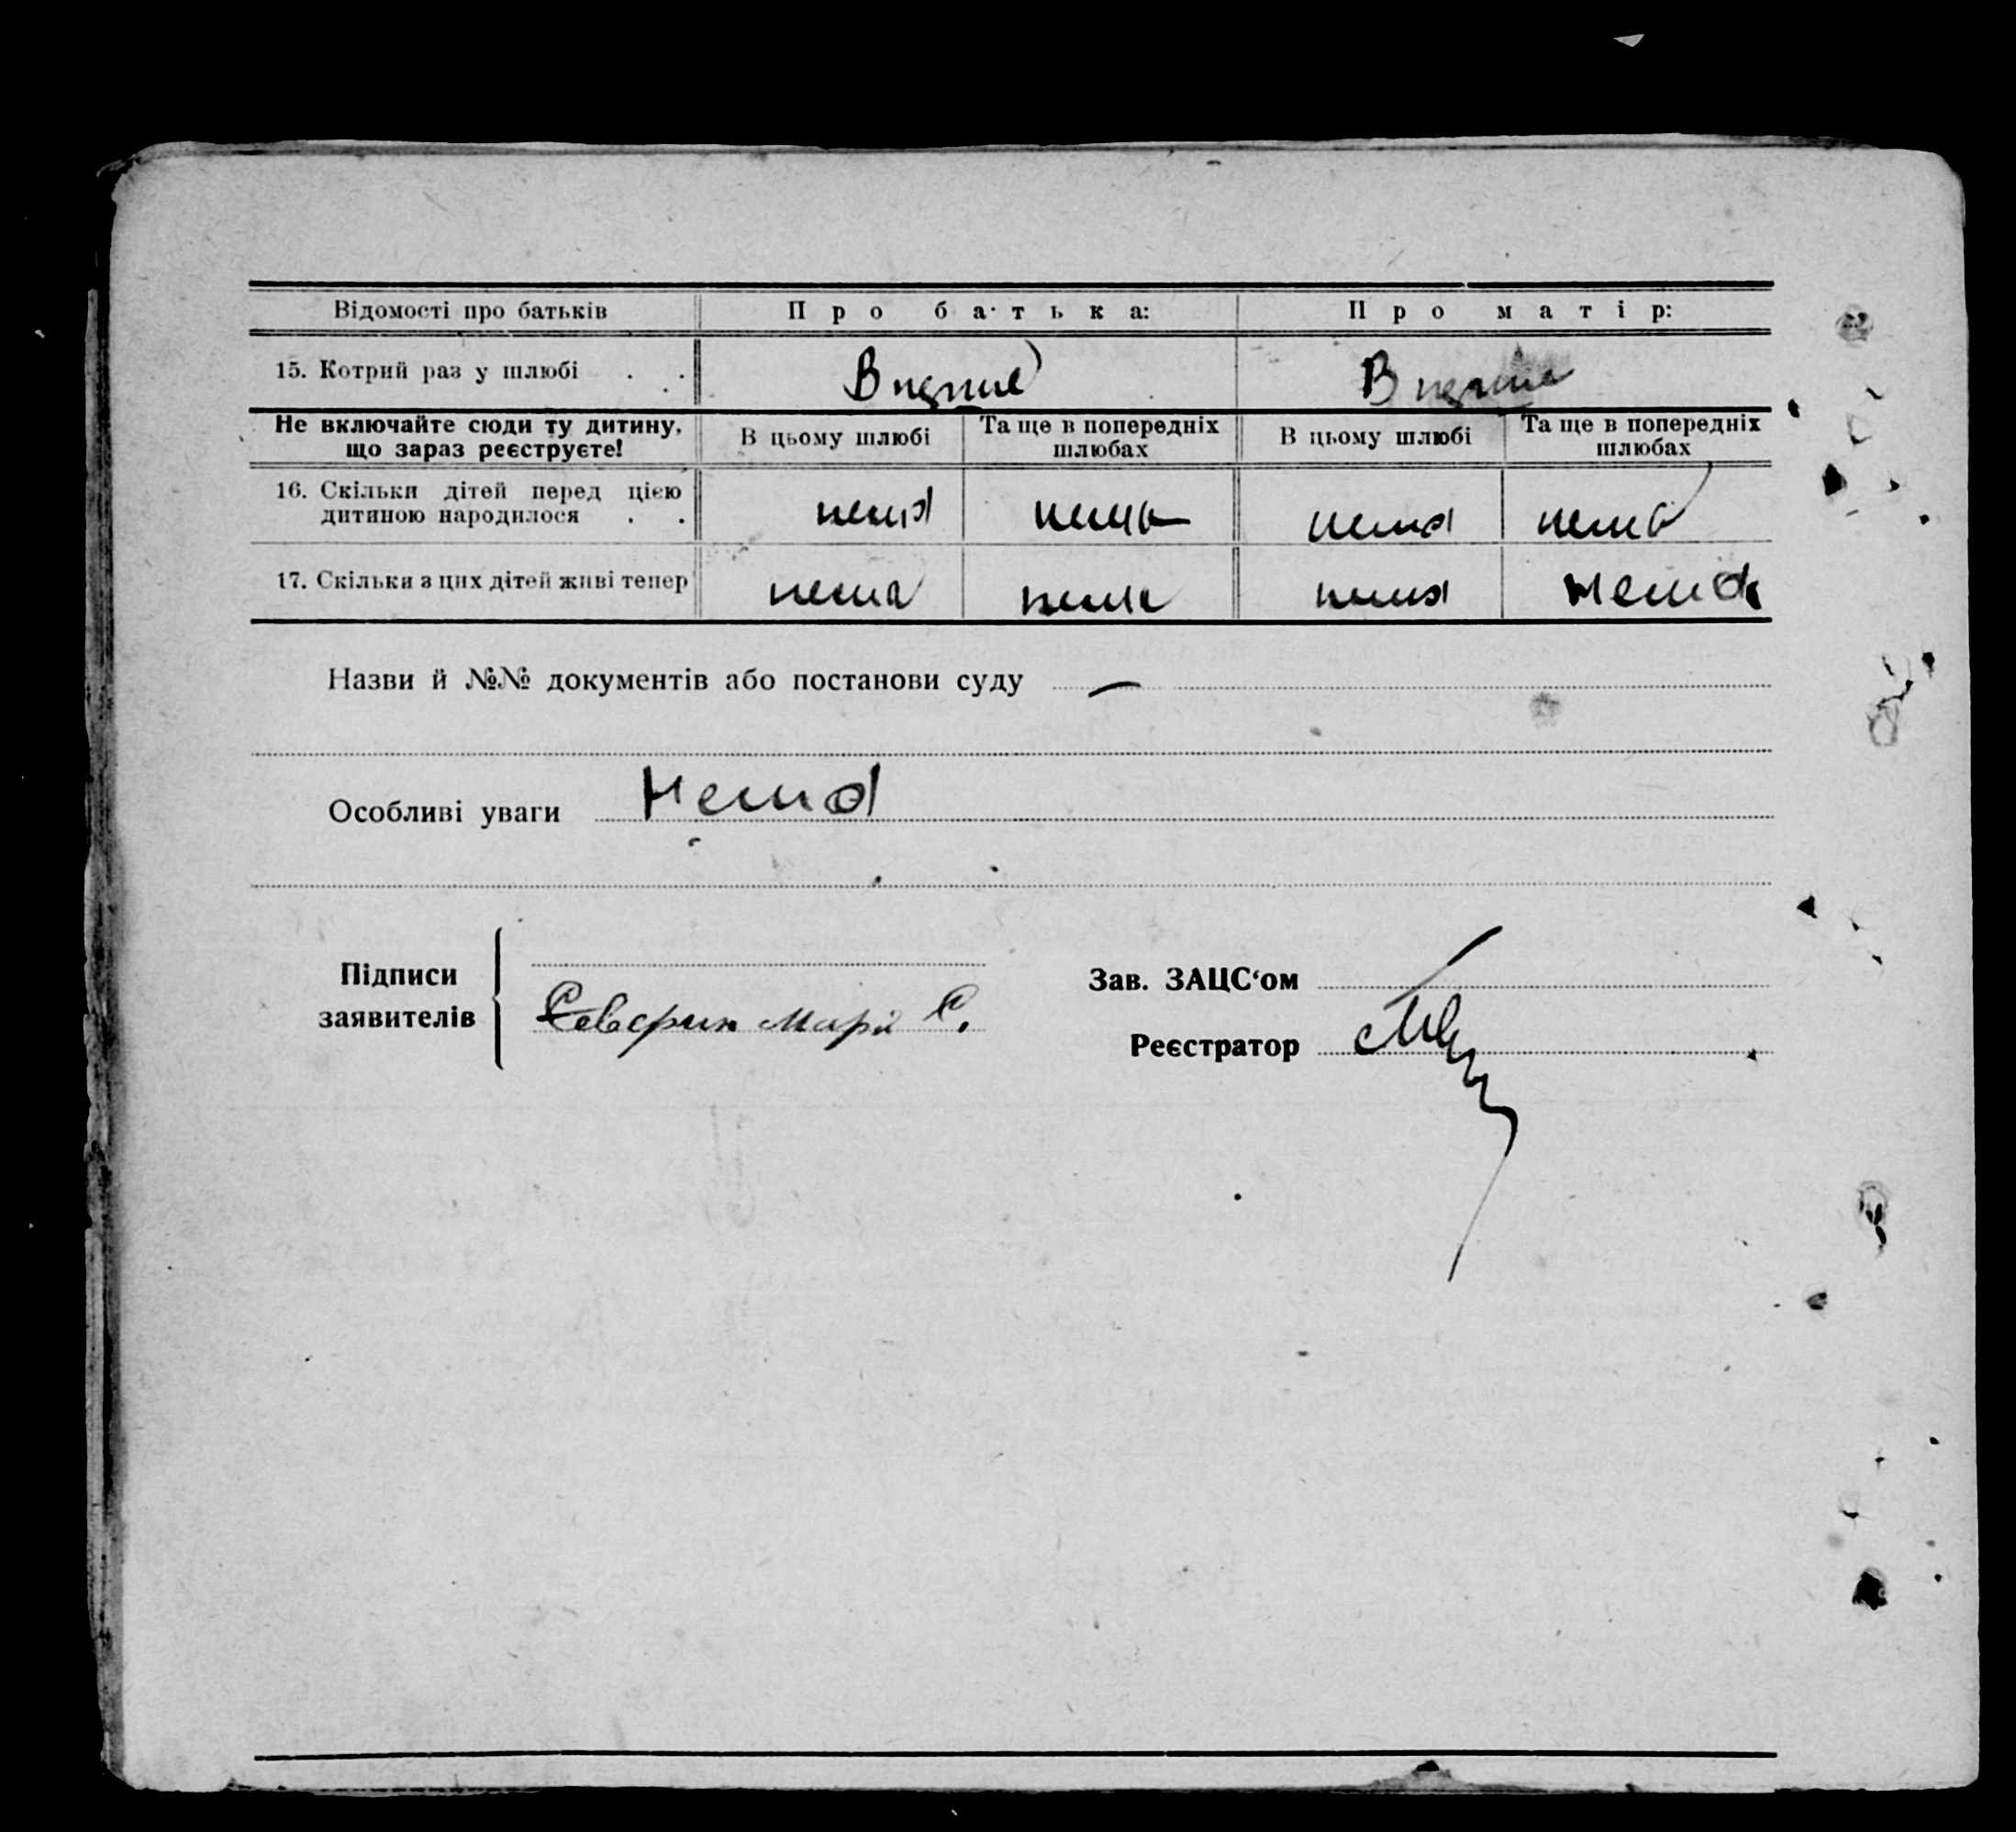 Відомості про батьків Про батька: Про матір:
15. Котрий раз у шлюбі . . Вперше Вперше
Не включайте сюди ту дитину, що зараз реєструєте! В цьому шлюбі Та ще в попередніх шлюбах В цьому шлюбі Та ще в попередніх шлюбах
16. Скільки дітей перед цією
дитиною народилося . . нема нема нема нема
17. Скільки з цих дітей живі тепер нема нема нема Нема
Назви й №№ документів або постанови суду —
Особливі уваги Нема
Підписи заявителів
Северин Марія С.
Зав. ЗАЦС‘ом
Реєстратор